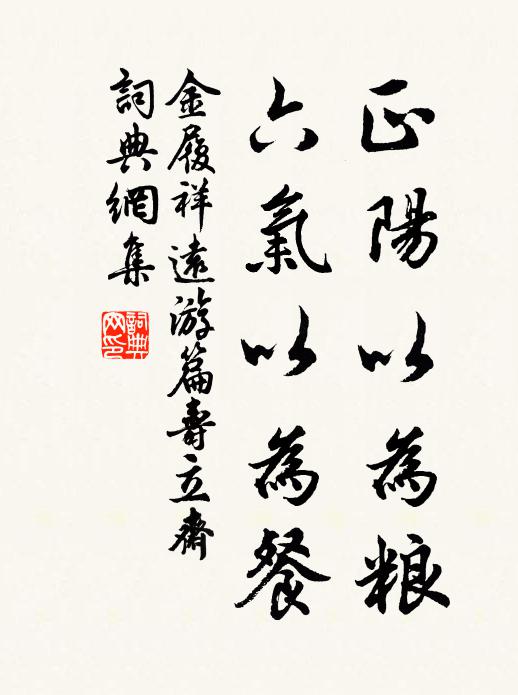 正陽以為粮
六氣以為餐
金履祥遠游篇壽立齋
詞典網集
詞典網印